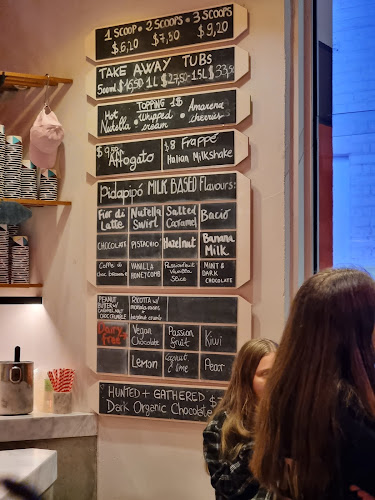 1 SCOOP • 2 SCOOPS • 3 SCOOPS
$6,20 $7,80 $9,20
TAKE AWAY TUBS
500ml 1L $27,50 1.5L
TOPPING 1$
Hot Nutella • Whipped cream • Amarena cherries
Affogato
$8 Frappé
Italian Milkshake
Pidapipó MILK BASED Flavours:
Fior di Latte
Nutella Swirl
Salted Caramel
Bacio
CHOCOLATE
PISTACHIO
Hazelnut
Banana Milk
VANILLA HONEYCOMB
Passionfruit Vanilla Slice
MINT & DARK CHOCOLATE
PEANUT BUTTER w/ CARAMEL AND CHOC CRUMBLE
RICOTTA w/
Dairy Free
Vegan Chocolate
Passion Fruit
Kiwi
Lemon
Coconut & lime
Pear
HUNTED + GATHERED
Dark Organic Chocolate